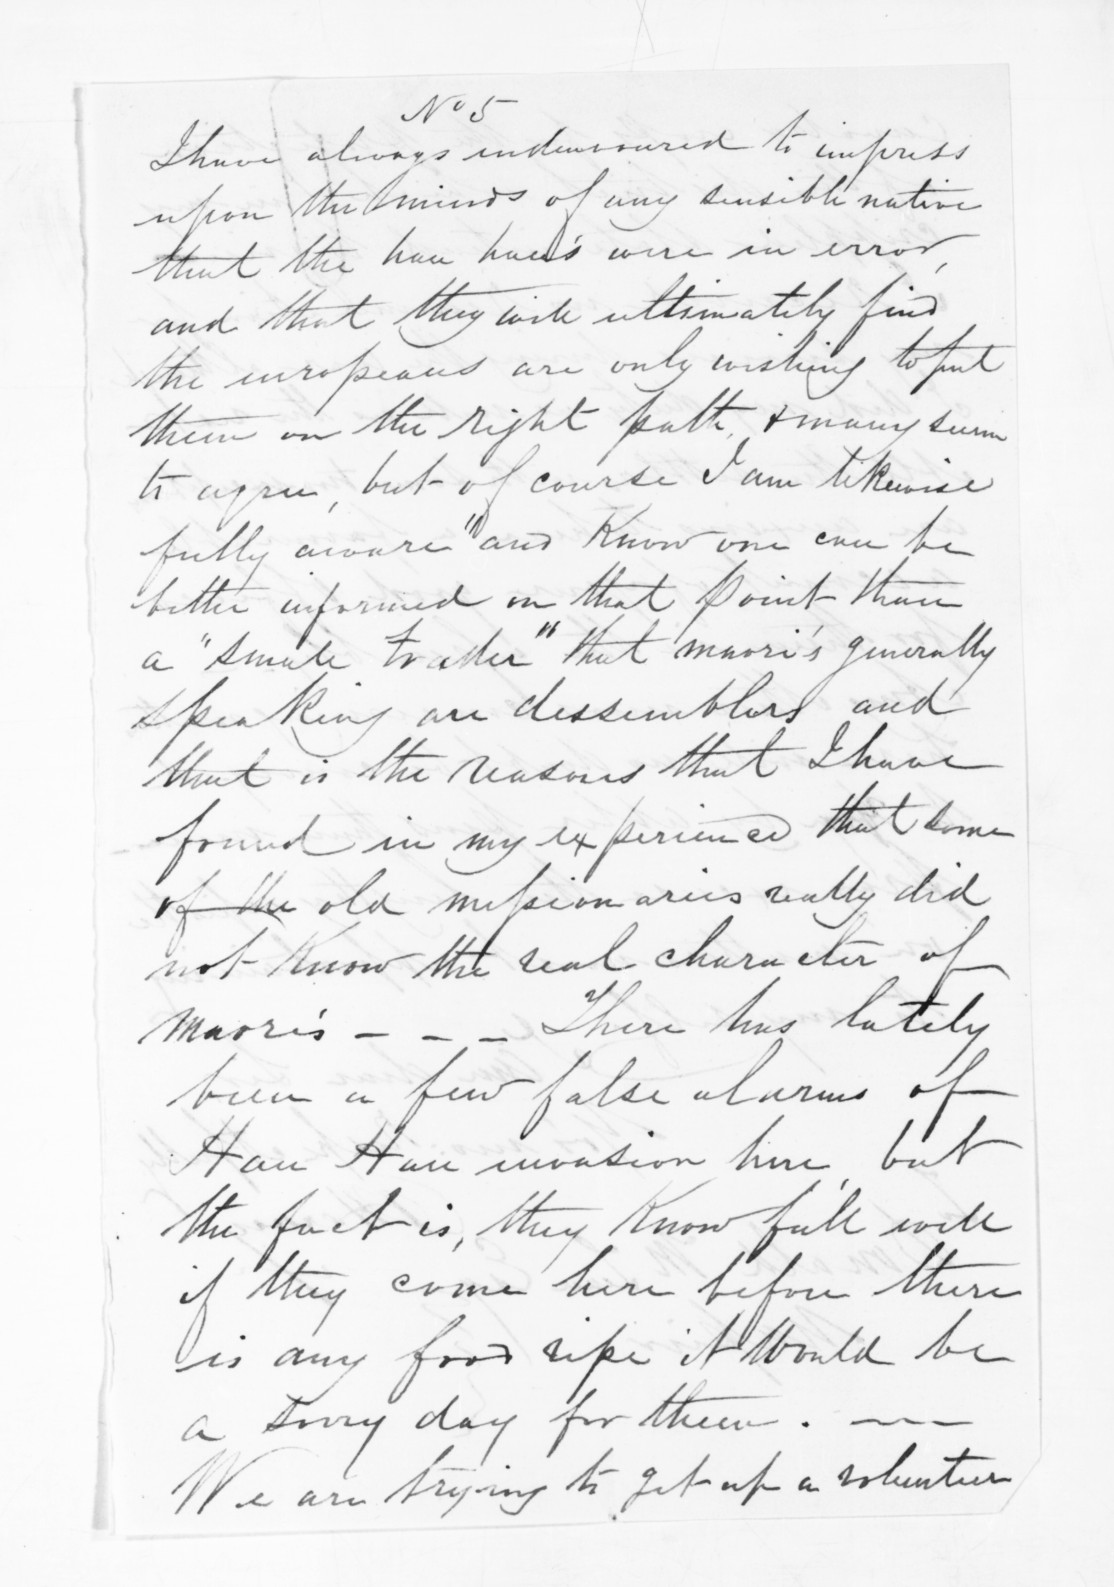 No 5
I have always endeavoured to impress
upon the minds of any sensible native
that the hau hau's were in error,
and that they will ultimately find
the europeans are only wishing to put
them on the right path, & many seem
to agree, but of course I am likewise
fully aware "and know one can be
better informed on that point than
a "smale trader" that maori's generally
speaking are dessemblers and
that is the reasons that I have
found in my experience that some
of the old missionaries really did
not know the real character of
maori's - - - There has lately
been a few false alarms of
Hau Hau invasion here, but
the fact is, they know full well
if they come here before there
is any food ripe it would be
a sorry day for them. - - -
We are trying to get up a volunteer